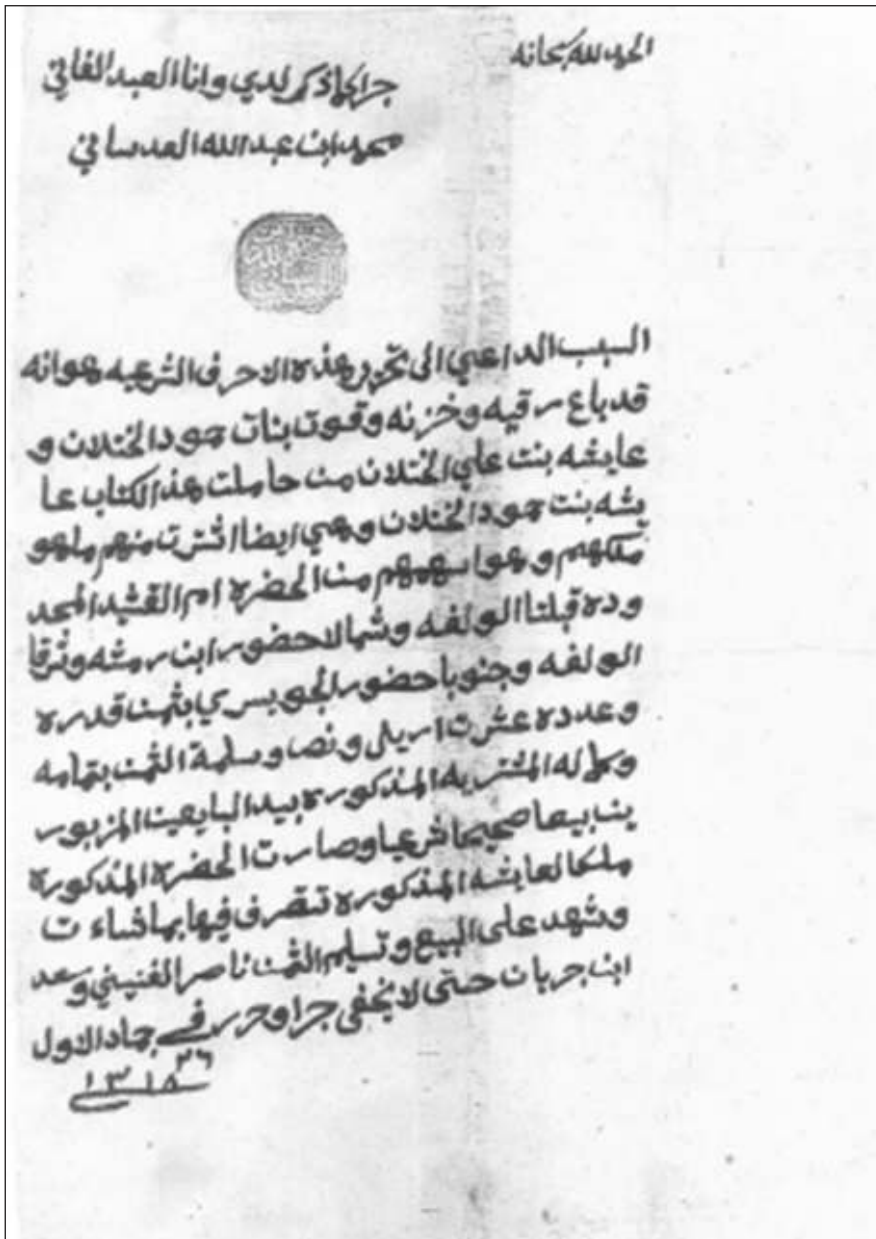 الحمد لله سبحانه
جرا كما ذكر لدي وانا العبد الفاني
محمد ابن عبد الله العدساني
السبب الداعي الى تحرير هذه الاحرف الشرعيه هو انه
قد باع رقيه وخزنه وقوت بنات حمود الختلان و
عايشه بنت علي الختلان من حاملت هذ الكتاب عا
يشه بنت حمود الختلان وهي ايضا اشترت منهم ما هو
ملكهم وهو اسهمهم من الحضرة ام القشيد المحد
وده قبلتا الولفه وشمالا حضور ابن رمثه وشرقا
الولفه وجنوبا حضور الجويسري بثمن قدره
وعدده عشرت اريل ونصا وسلمة الثمن بتمامه
وكماله المشتريه المذكورة بيد البايعين المزبور
ين بيعا صحيحا شرعيا وصارت الحضرة المذكورة
ملكا لعايشه المذكوره تتصرف فيها بما شاءت
وشهد على البيع وتسليم الثمن ناصر الغنيني وسعد
ابن جربان حتى لا يخفى جرا وحرر في جماد الاول
٢٦
١٣١٨